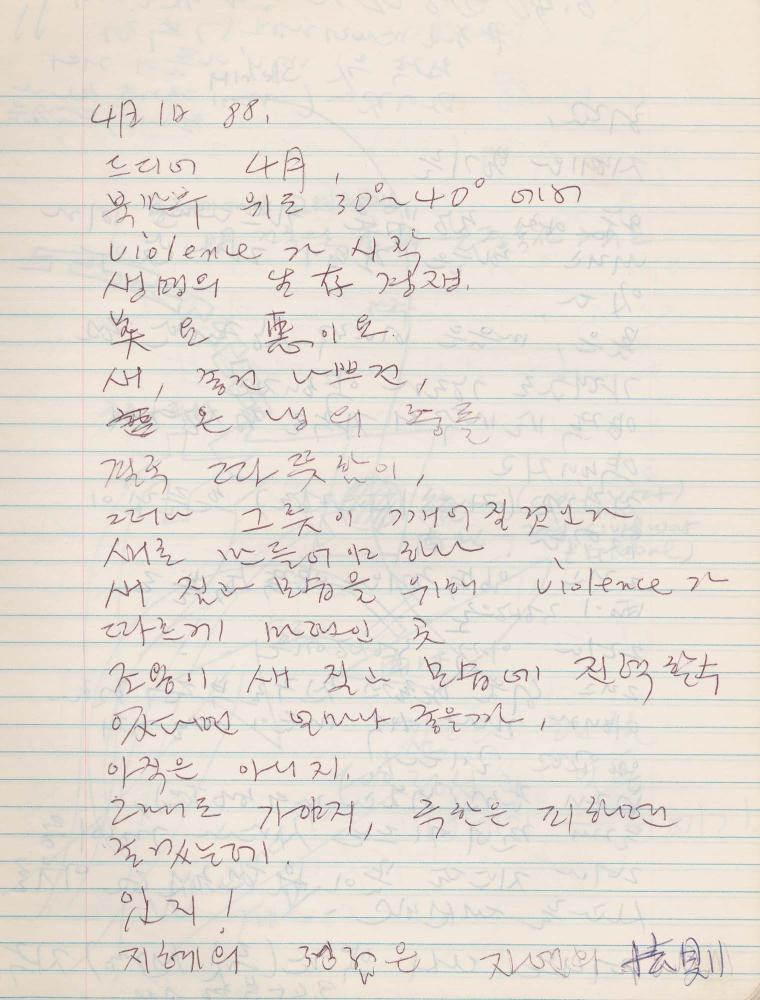 4月 1日 88.
드디어 4月,
북반구 위로 30°~40° 에서
violence 가 시작
생명의 生存 경쟁.
美 요 惡이요.
새, 좋건 나쁘건,
온 님의
결국 그다 뜻함이,
그러나 그 뜻이 깨어질것이다
새로 만들어야 하나
새 질과 모습을 위해 violence 가
따르게 마련인 곳
조용히 새 질과 모습에 진역할수
있다면 얼마나 좋을까,
아직은 아니지.
그대로 가야지, 극한은 피하면
좋겠는데.
있지!
지혜의 정립은 자연의 法則